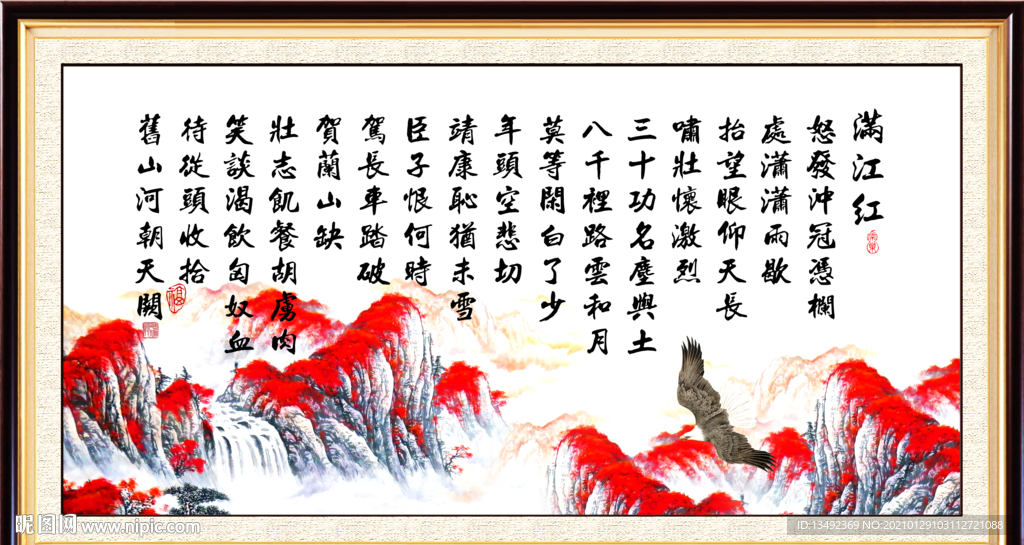 滿江紅
怒發沖冠憑欄
處瀟瀟雨歇
抬望眼仰天長
嘯壯懷激烈
三十功名塵與土
八千裡路雲和月
莫等閑白了少
年頭空悲切
靖康恥猶未雪
臣子恨何時
駕長車踏破
賀蘭山缺
壯志飢餐胡虜肉
笑談渴飲匈奴血
待從頭收拾
舊山河朝天闕
昵图网 www.nipic.com
ID:13492369 NO:20210129103112721088